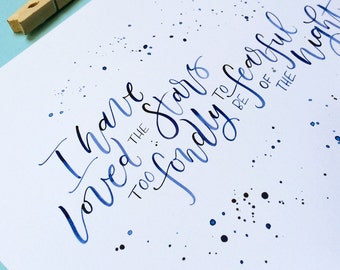 I have
loved THE Stars
TOO fondly TO BE fearful
OF THE night